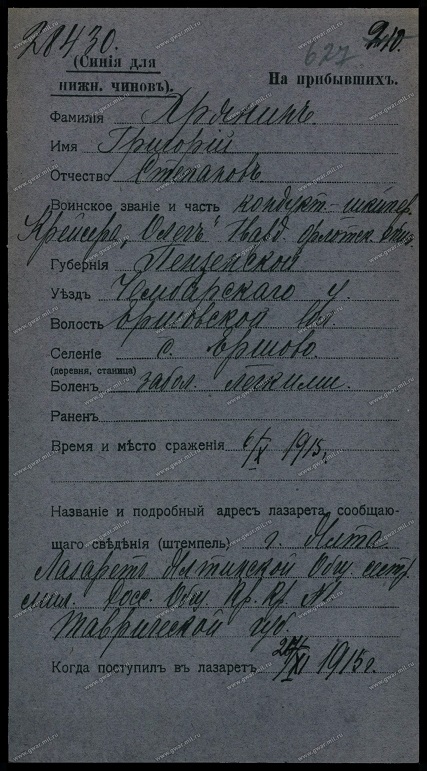 28430.
627
210.
(Синія для
нижн. чиновъ).
На прибывшихъ.
Фамилія
Имя Григорій
Отчество Степановъ
Воинское званіе и часть кондукт - шкипер.
Крейсера „Олегъ" Гвард. флотск. экип.
Губернія Пензенской
Уѣздъ Чембарскаго у.
Волость Ершовской вол.
Селеніе с. Ершово.
(деревня, станица)
Боленъ забол. легкими.
Раненъ
Время и мѣсто сраженія 6/X 1915 г.
Названіе и подробный адресъ лазарета, сообщаю-
щаго свѣдѣнія (штемпель) г. Ялта
Лазаретъ Ялтинской Общ. сестр.
мил. Росс. Общ. Кр. Кр. №
Таврической губ.
Когда поступилъ въ лазаретъ 1915 г.
www.gwar.mil.ru